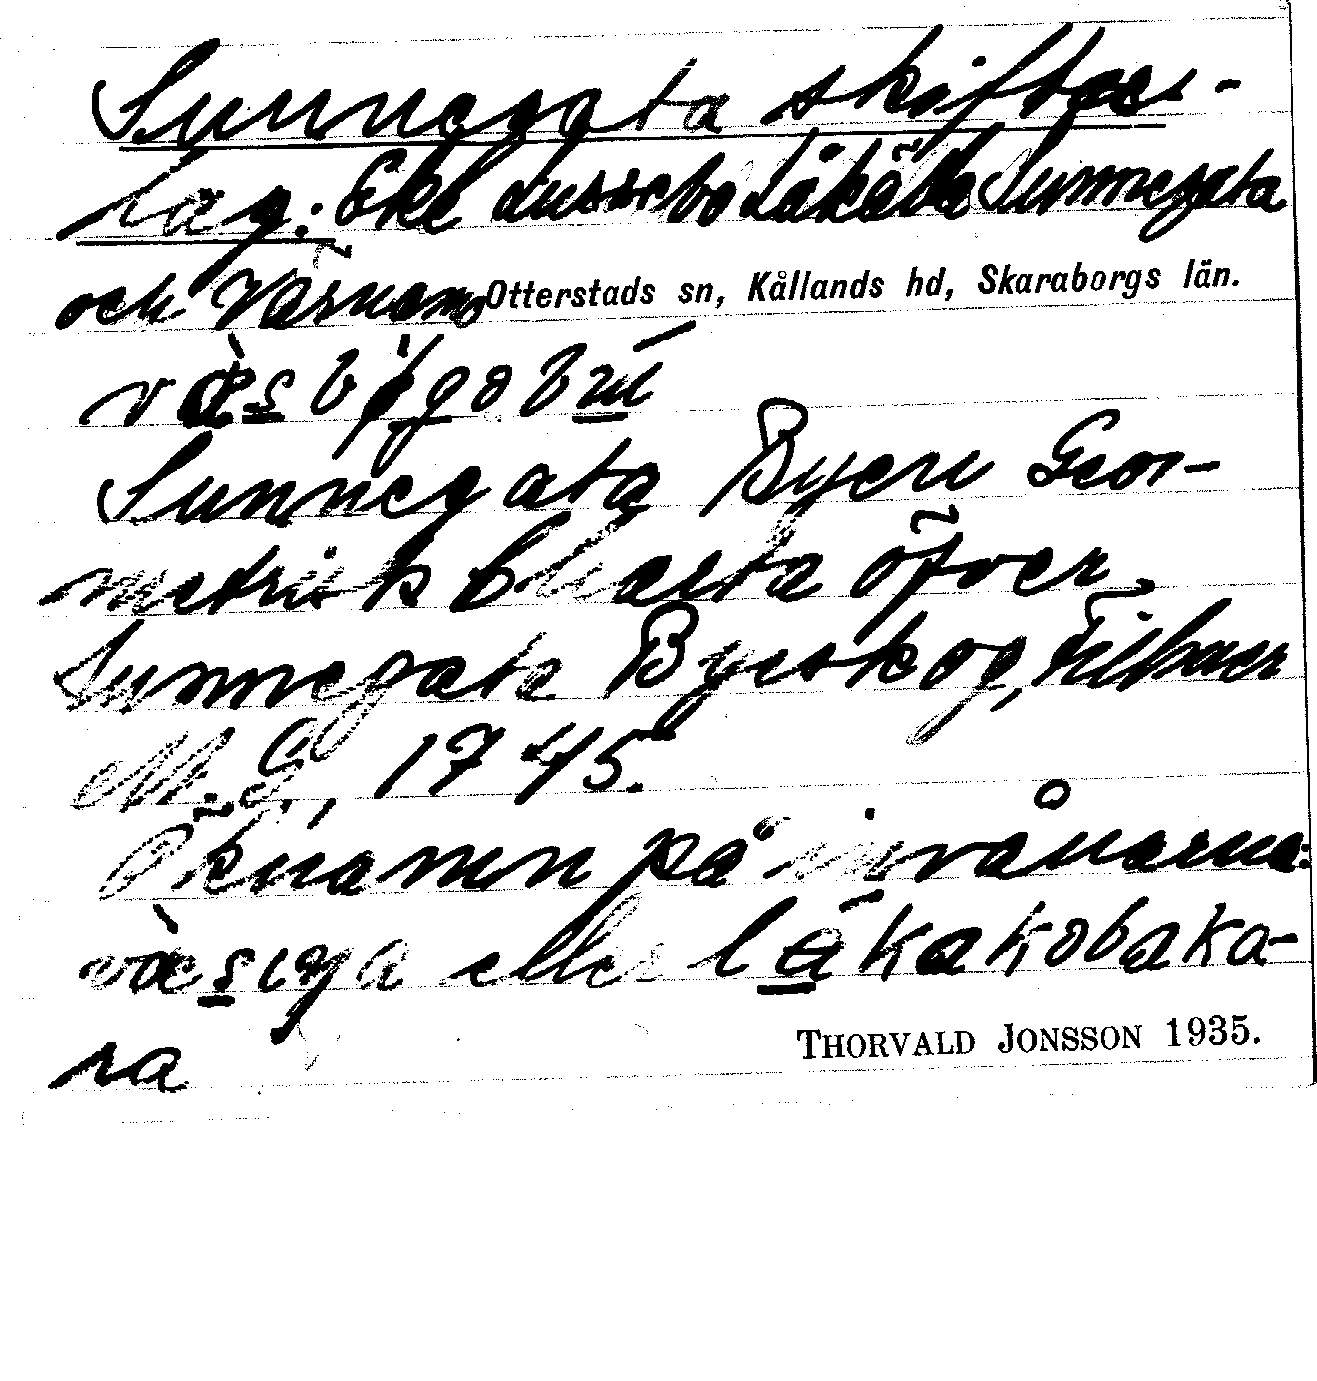 Sunnegata skiftes-
lag: Eke Lussebo Låkälla Sunnegata
och Värnamo Otterstads sn, Kållands hd, Skaraborgs län.
Sunnegata Byen Geo-
metrisk Charta öfver
Sunnegata Byeskog, Filbaer
M. G., 1745.
Öknamn på invånarna:
eller läkakobaka-
ra
THORVALD JONSSON 1935.